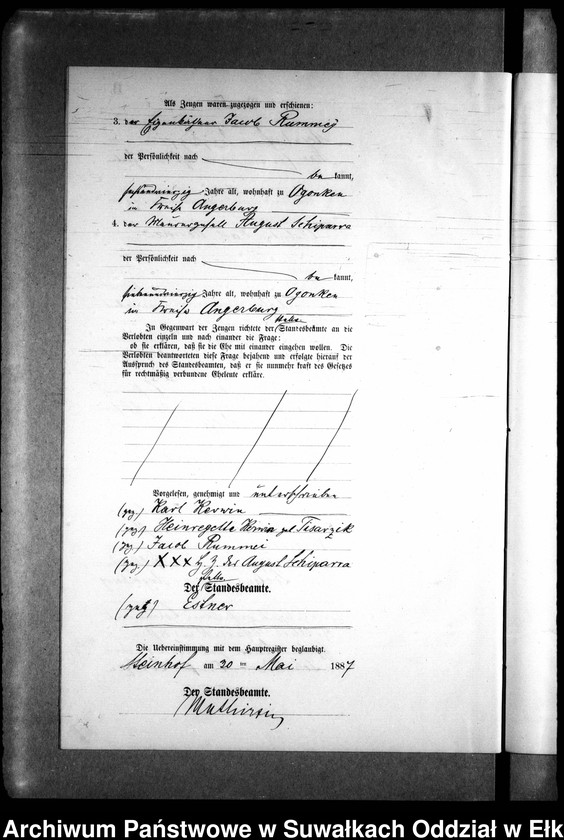 Als Zeugen waren zugezogen und erschienen:
3. der Eigenkäthner Jacob Rummey
der Persönlichkeit nach
be kannt,
sechsundvierzig Jahre alt, wohnhaft zu Ogonken
im Kreise Angerburg
4. der Maurergesell August Schiparra
der Persönlichkeit nach
be kannt,
siebenundvierzig Jahre alt, wohnhaft zu Ogonken
im Kreise Angerburg
In Gegenwart der Zeugen richtete der Standesbeamte an die
Verlobten einzeln und nach einander die Frage:
ob sie erklären, daß sie die Ehe mit einander eingehen wollen. Die
Verlobten beantworteten diese Frage bejahend und erfolgte hierauf der
Ausspruch des Standesbeamten, daß er sie nunmehr kraft des Gesetzes
für rechtmäßig verbundene Eheleute erkläre.
Vorgelesen, genehmigt und unterschrieben
(gez) Karl Kerwin
(gez) Heinregette Kerwin geb Tisarzik
(gez) Jacob Rummei
(gez) XXX H. Z. des August Schiparra
Der Standesbeamte.
(gez) Estner
Die Uebereinstimmung mit dem Hauptregister beglaubigt.
Steinhof am 20 ten Mai 1887
Der Standesbeamte.
Archiwum Państwowe w Suwałkach Oddział w Ełk